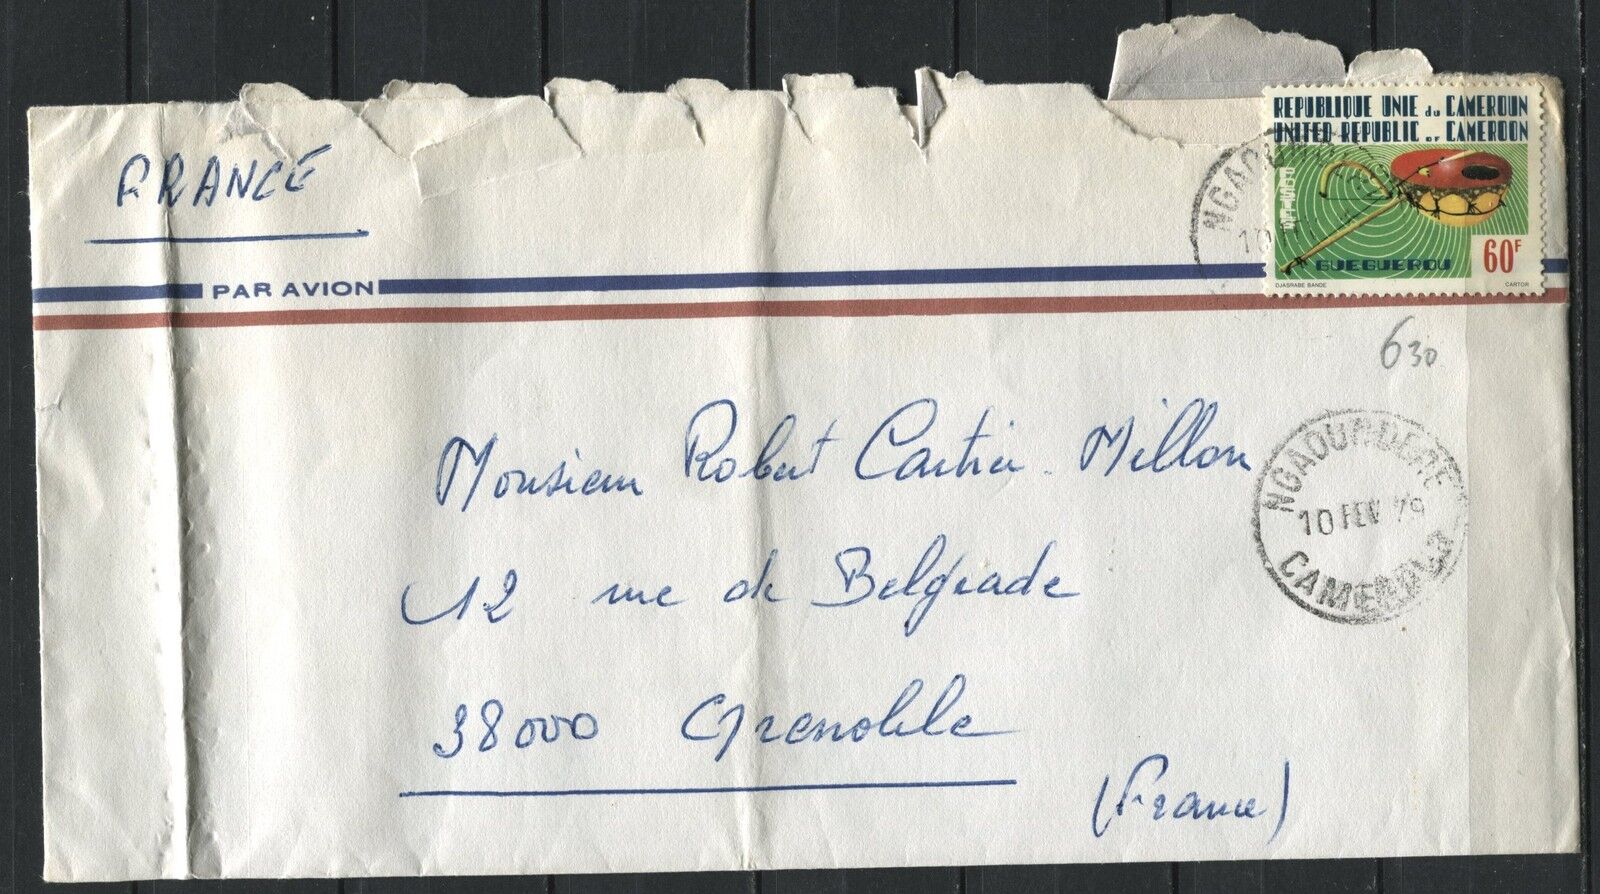 FRANCE
REPUBLIQUE UNIE du CAMEROUN
UNITED REPUBLIC OF CAMEROON
60F
GUEGUEROU
DJASRABE BANDE CARTOR
PAR AVION
630
NGAOUNDERE
10 FEV 79
CAMEROUN
Monsieur Robert Cartier-Millon
12 rue de Belgrade
38000 Grenoble
(France)